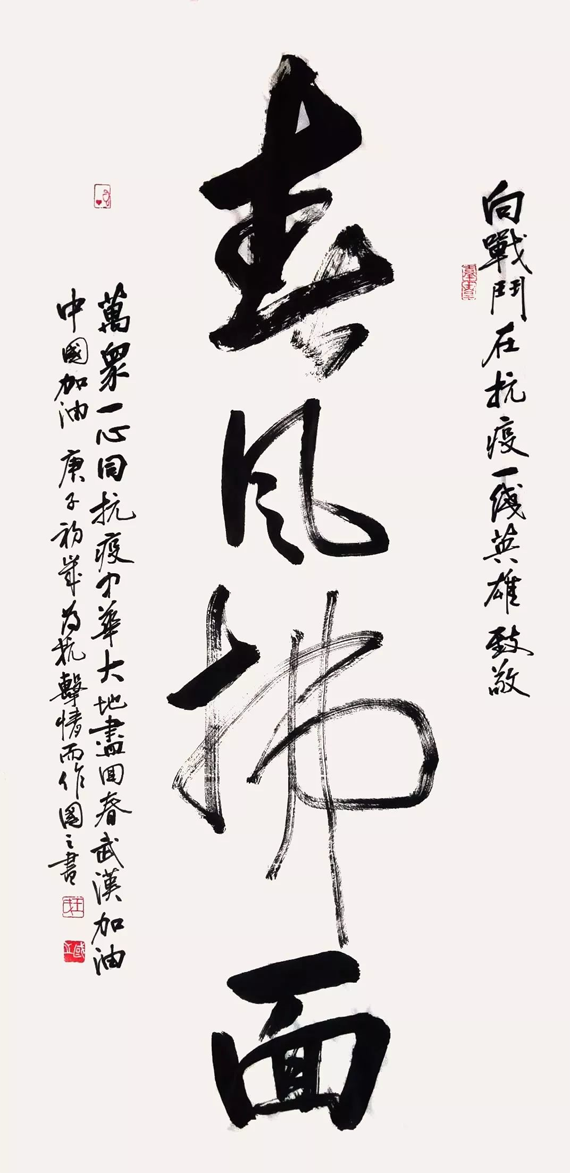 向戰鬥在抗疫一綫英雄致敬
春风拂面
萬眾一心同抗疫中華大地盡回春武漢加油
中國加油 庚子初歲为抗擊情而作國立書
王
國立